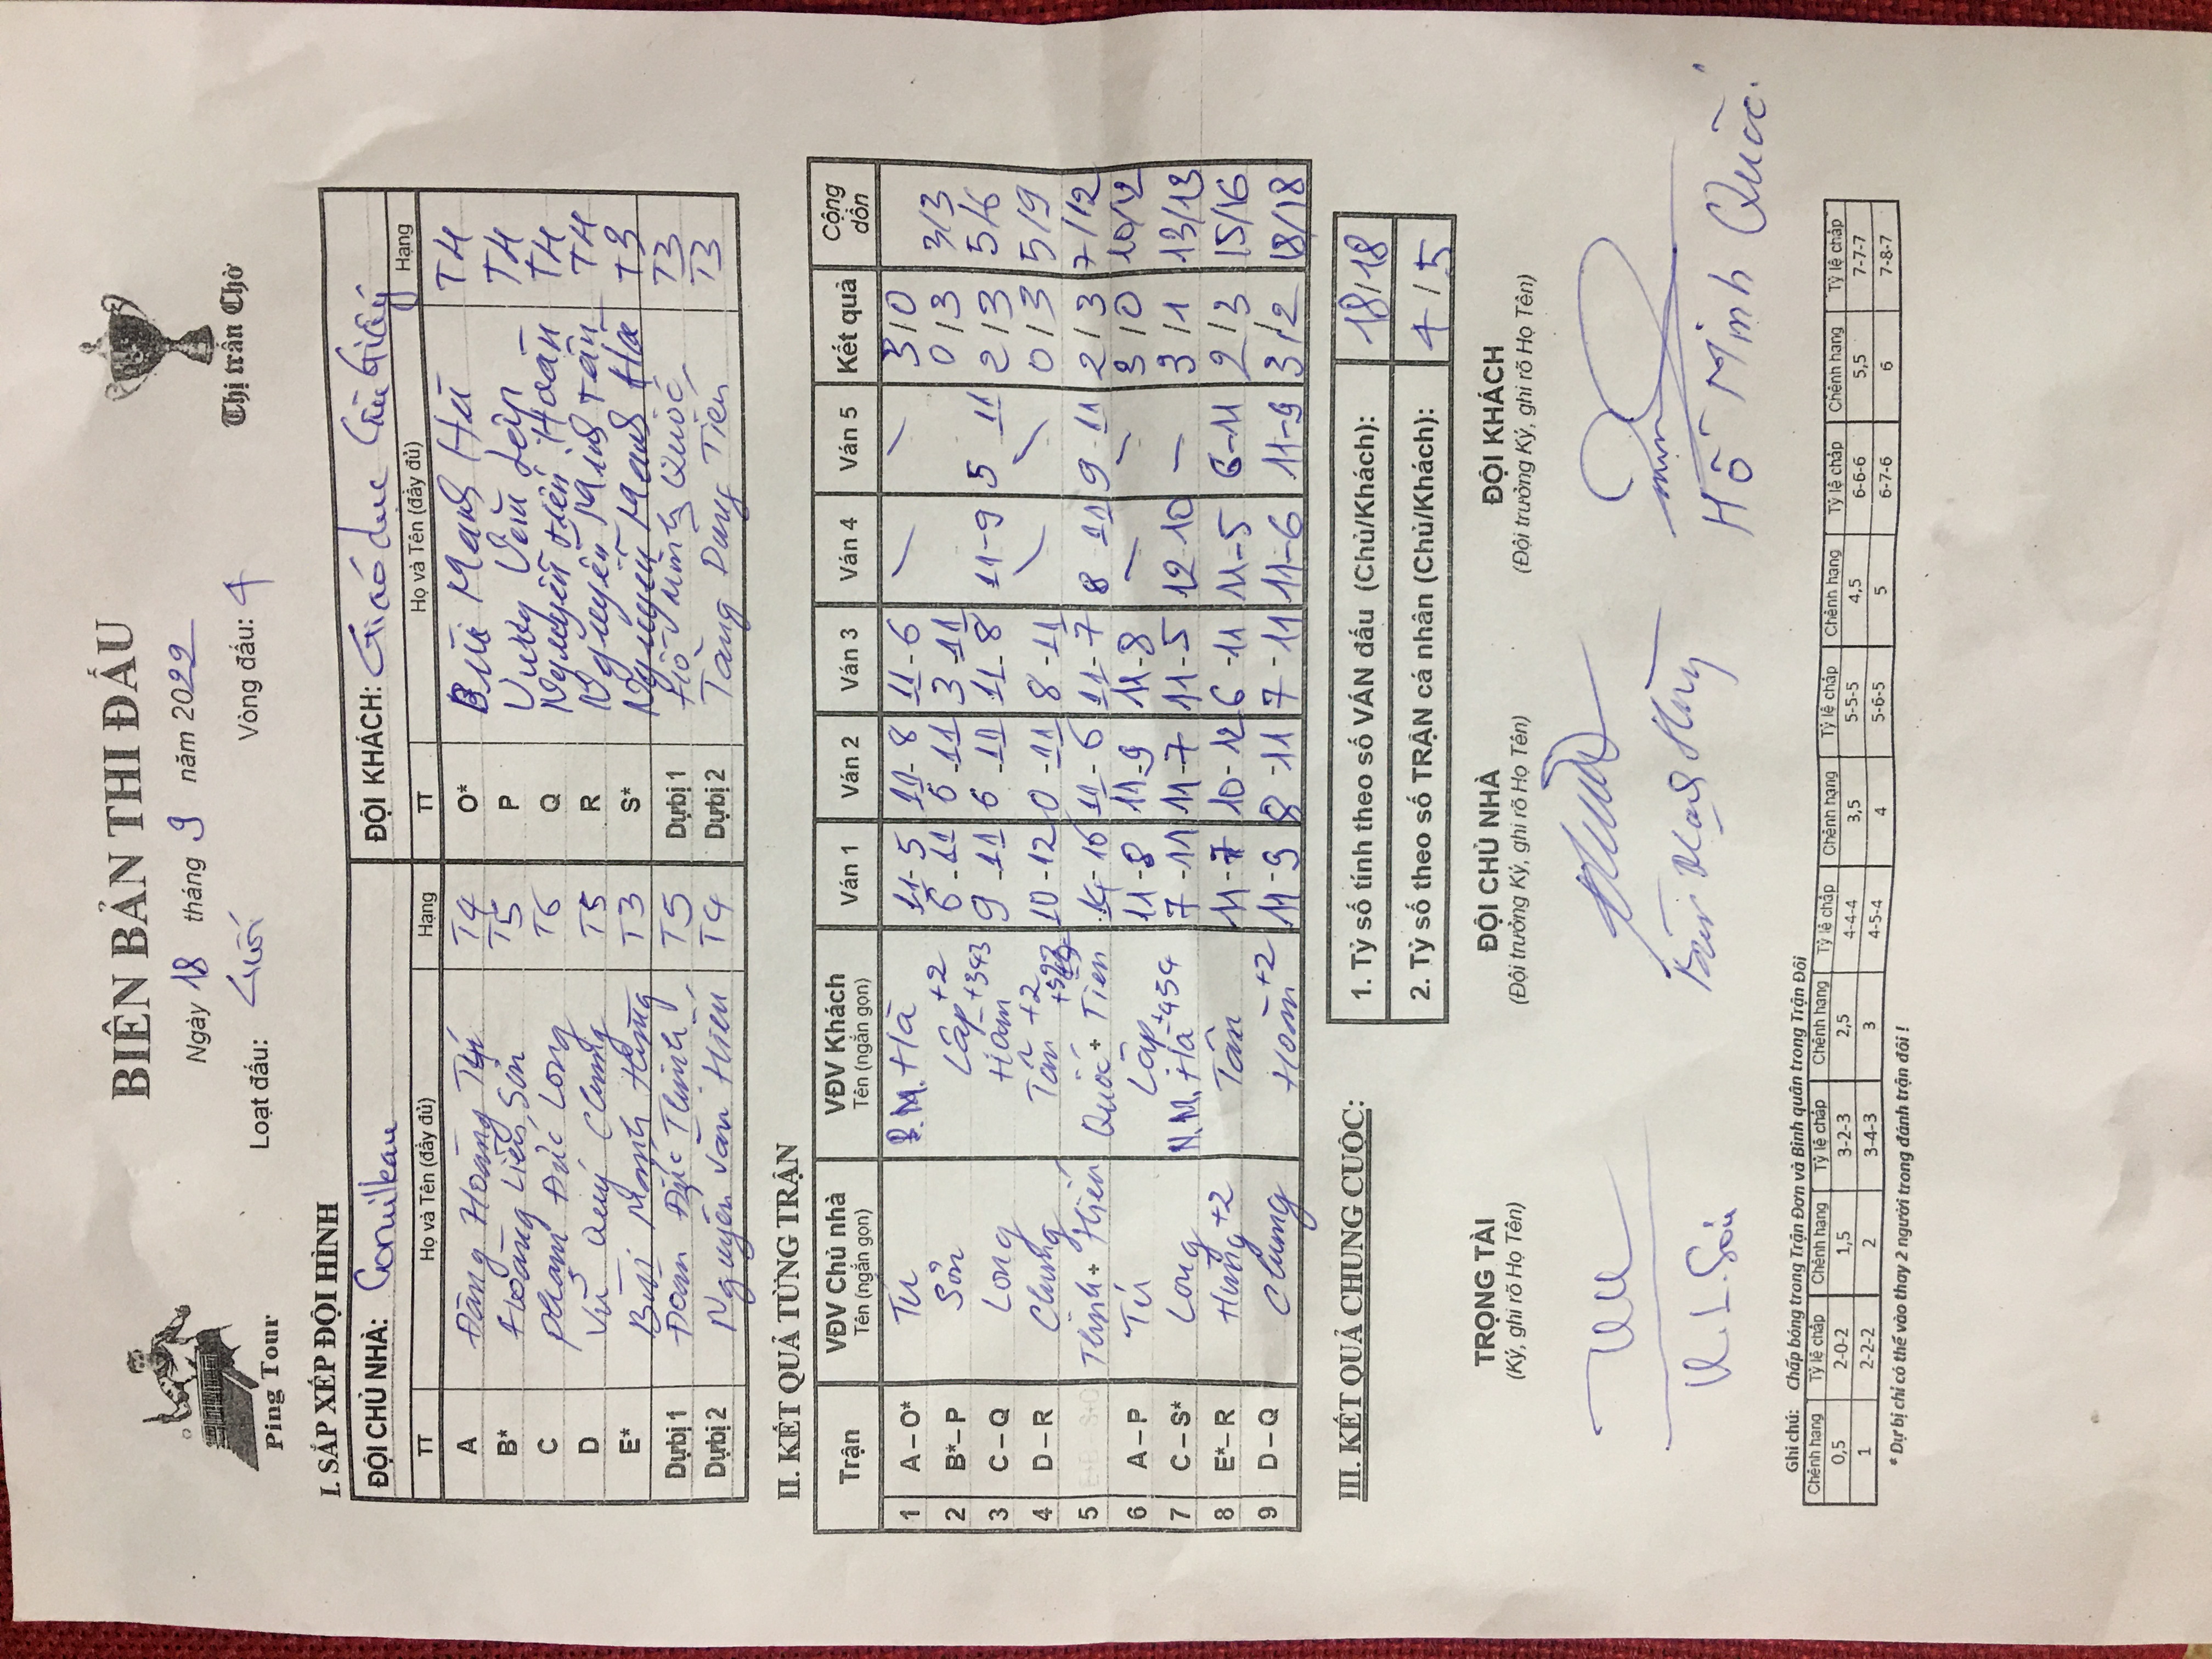 BIÊN BẢN THI ĐẤU
Ping Tour
Thị trấn Chờ
Ngày 18 tháng 9 năm 2022
Loạt đấu: Vòng đấu: 4
I. SẮP XẾP ĐỘI HÌNH
ĐỘI CHỦ NHÀ: ĐỘI KHÁCH: Giáo dục Cầu Giấy
TT Họ và Tên (đầy đủ) Hạng TT Họ và Tên (đầy đủ) Hạng
A Đặng Hoàng Tú T4 O* Bùi Mạnh Hà TH
B* Hoàng Liên Sơn T5 P TH
C Phạm Đức Long T6 Q Nguyễn Hoàn TH
D Vũ Quý Chung T5 R Nguyễn Minh Tân TH
E* Bùi Mạnh Hùng T3 S* Nguyễn Mạnh Hà T3
Dự bị 1 Đoàn Đức Thịnh T5 Dự bị 1 Hồ Minh Quốc T3
Dự bị 2 Nguyễn Văn Hiến T4 Dự bị 2 Tăng Dung Tiến T3
II. KẾT QUẢ TỪNG TRẬN
Trận VĐV Chủ nhà VĐV Khách Ván 1 Ván 2 Ván 3 Ván 4 Ván 5 Kết quả Cộng dồn
Tên (ngắn gọn) Tên (ngắn gọn)
1 A – O* Tú B.M.Hà 11-5 11-8 11-6 / / 3/0
2 B* – P Sơn Lập +2 6-11 6-11 3-11 0/3 3/3
3 C – Q Long Hoàn +343 9-11 6-11 11-8 11-9 5-11 2/3 5/6
4 D – R Chung Tân +2 10-12 0-11 8-11 / / 0/3 5/9
5 Thịnh + Hiến Quốc + Tiến 14-16 11-6 11-7 8-11 9-11 2/3 7/12
6 A – P Tú Lập 11-8 11-9 11-8 / / 3/0 10/12
7 C – S* Long N.M.Hà +454 7-11 11-7 11-5 12-10 / 3/1 13/13
8 E* – R Hùng +2 Tân 11-7 10-12 6-11 11-5 6-11 2/3 15/16
9 D – Q Chung Hoàn +2 11-9 8-11 7-11 11-6 11-9 3/2 18/18
III. KẾT QUẢ CHUNG CUỘC:
1. Tỷ số tính theo số VÁN đấu (Chủ/Khách): 18/18
2. Tỷ số theo số TRẬN cá nhân (Chủ/Khách): 4/5
TRỌNG TÀI ĐỘI CHỦ NHÀ ĐỘI KHÁCH
(Ký, ghi rõ Họ Tên) (Đội trưởng Ký, ghi rõ Họ Tên) (Đội trưởng Ký, ghi rõ Họ Tên)
H. L. Sơn Bùi Mạnh Hùng Hồ Minh Quốc
Ghi chú: Chấp bóng trong Trận Đơn và Bình quân trong Trận Đôi
Chênh hạng Tỷ lệ chấp Chênh hạng Tỷ lệ chấp Chênh hạng Tỷ lệ chấp Chênh hạng Tỷ lệ chấp Chênh hạng Tỷ lệ chấp Chênh hạng Tỷ lệ chấp
0,5 2-0-2 1,5 3-2-3 2,5 4-4-4 3,5 5-5-5 4,5 6-6-6 5,5 7-7-7
1 2-2-2 2 3-4-3 3 4-5-4 4 5-6-5 5 6-7-6 6 7-8-7
* Dự bị chỉ có thể vào thay 2 người trong đánh trận đôi !